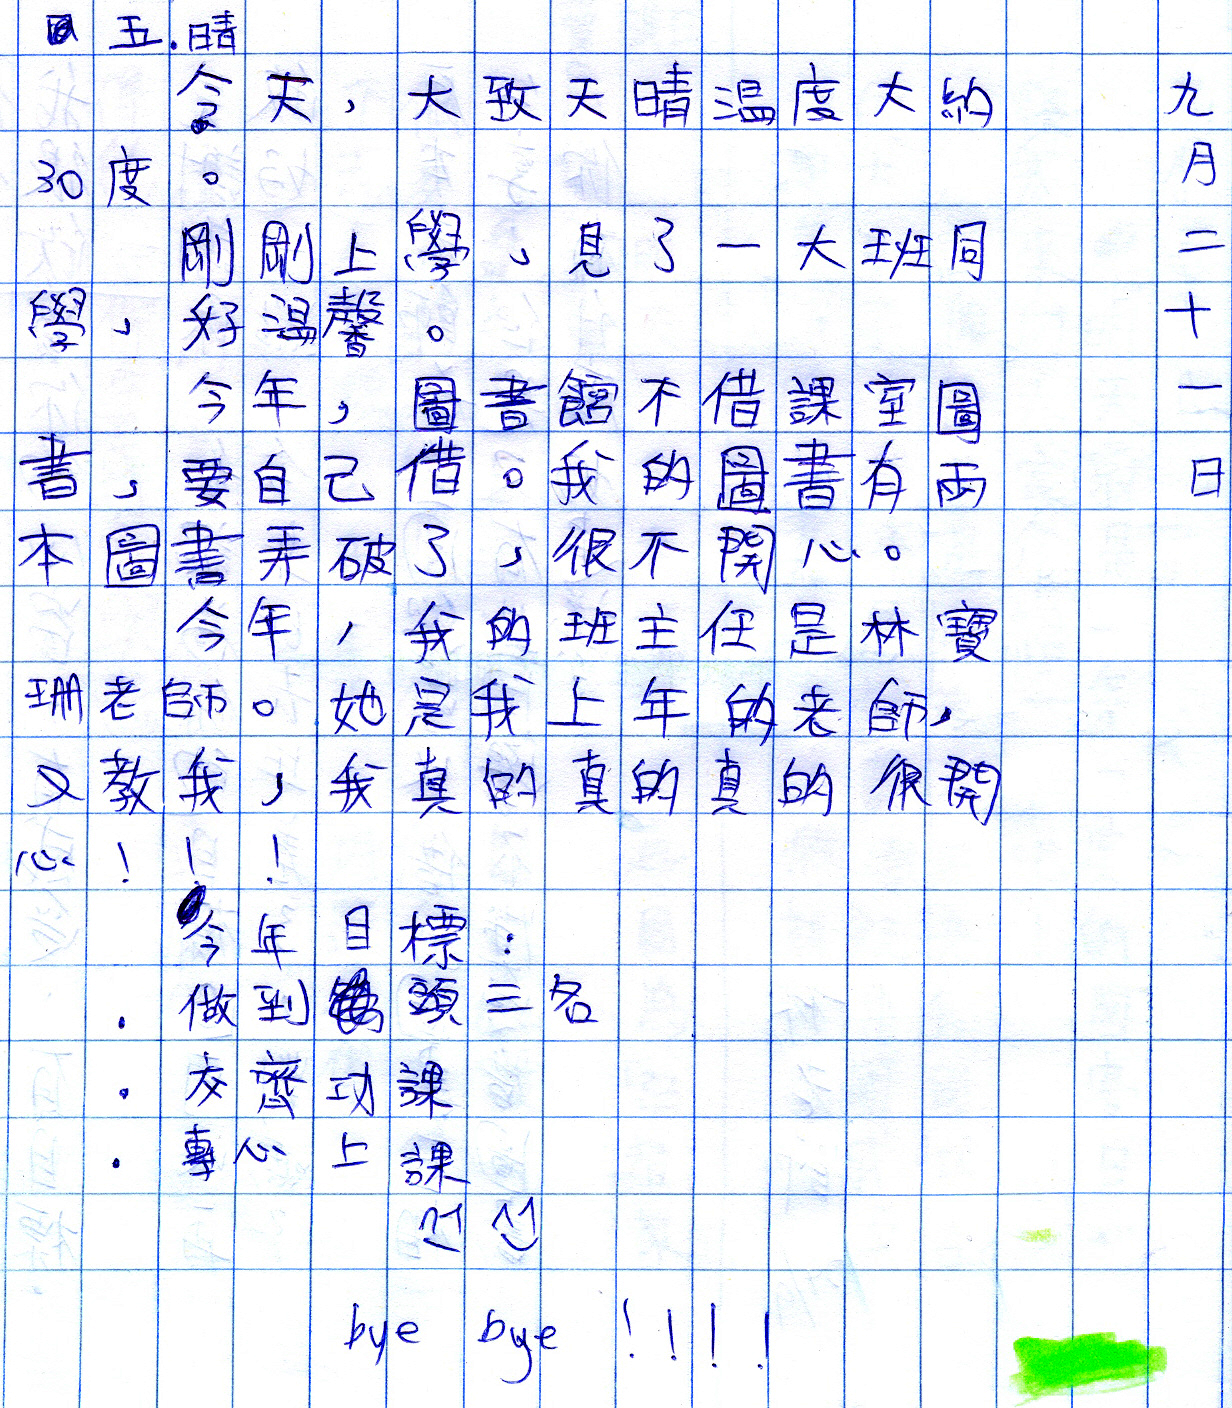 五.晴
九月二十一日
今天,大致天晴温度大約
30度。
剛剛上學,見了一大班同
學,好温馨。
今年,圖書館不借課室圖
書,要自己借。我的圖書有兩
本圖書弄破了,很不開心。
今年,我的班主任是林寶
珊老師。她是我上年的老師,
又教我,我真的真的真的很開
心!!!
今年目標:
.做到頭三名
.交齊功課
.專心上課
선
bye bye !!!!